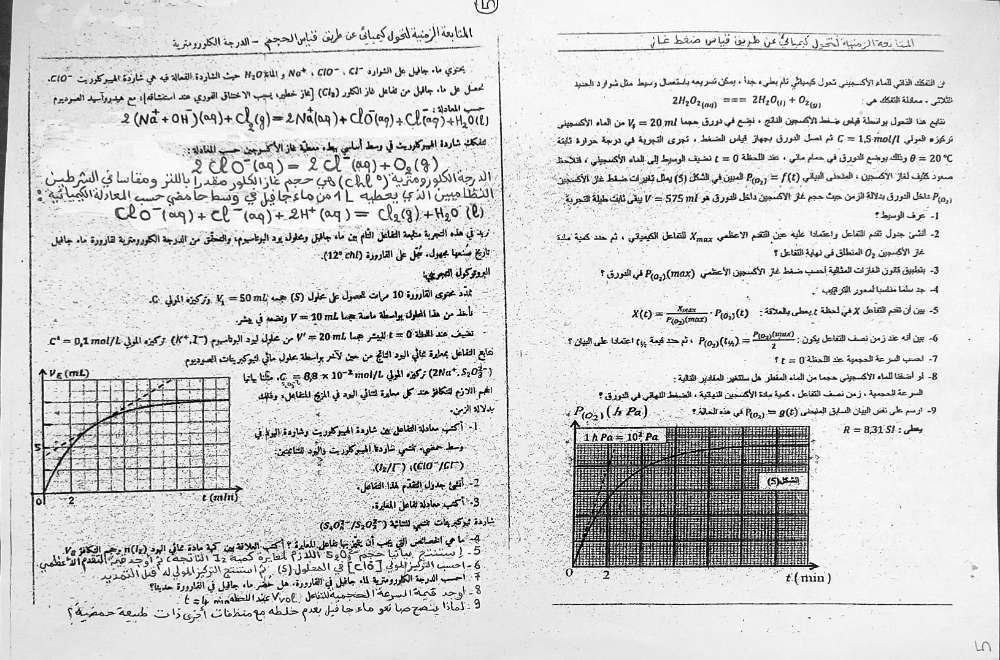 5
المتابعة الزمنية لتحول كيميائي عن طريق قياس ضغط غاز
من التفكك الذاتي للماء الأكسجيني تحول كيميائي تام بطيء جدا، يمكن تسريعه باستعمال وسيط مثل شوارد الحديد
الثلاثي. معادلة التفكك هي: 2H₂O₂(aq) === 2H₂O(l) + O₂(g)
نتابع هذا التحول بواسطة قياس ضغط الأكسجين الناتج، نضع في دورق حجما V₀ = 20 ml من الماء الأكسجيني
تركيزه المولي C = 1,5 mol/l ثم نصل الدورق بجهاز قياس الضغط. تجرى التجربة في درجة حرارة ثابتة
θ = 20 °C وذلك بوضع الدورق في حمام مائي. عند اللحظة t = 0 نضيف الوسيط إلى الماء الأكسجيني، فنلاحظ
صعود كثيف لغاز الأكسجين. المنحنى البياني P(O₂) = f(t) المبين في الشكل (5) يمثل تغيرات ضغط غاز الأكسجين
P(O₂) داخل الدورق بدلالة الزمن حيث حجم غاز الأكسجين داخل الدورق هو V = 575 ml يبقى ثابت طيلة التجربة
1- عرف الوسيط؟
2- أنشئ جدول تقدم للتفاعل واعتمادا عليه عين التقدم الاعظمي Xmax للتفاعل الكيميائي، ثم حدد كمية مادة
غاز الأكسجين O₂ المنطلق في نهاية التفاعل؟
3- بتطبيق قانون الغازات المثالية أحسب ضغط غاز الأكسجين الأعظمي P(O₂)(max) في الدورق؟
4- جد سلما مناسبا لمحور التراتيب
5- بين أن تقدم التفاعل X في لحظة t يعطى بالعلاقة: X(t) = Xmax / P(O₂)(max) · P(O₂)(t)
6- بين أنه عند زمن نصف التفاعل يكون: P(O₂)(t½) = P(O₂)(max) / 2، ثم حدد قيمة t½ اعتمادا على البيان؟
7- احسب السرعة الحجمية عند اللحظة t = 0؟
8- لو أضفنا للماء الأكسجيني حجما من الماء المقطر هل ستتغير المقادير التالية:
السرعة الحجمية، زمن نصف التفاعل، كمية مادة الأكسجين النهائية، الضغط النهائي في الدورق؟
9- ارسم على نفس البيان السابق المنحنى P(O₂) = g(t) في هذه الحالة؟
يعطى: R = 8,31 SI
P(O₂)(h Pa)
1 h Pa = 10² Pa
الشكل(5)
0
2
t (min)
المتابعة الزمنية لتحول كيميائي عن طريق قياس الحجم - الدرجة الكلورومترية
يحتوي ماء جافيل على الشوارد Na⁺ ، ClO⁻ ، Cl⁻ و الماء H₂O حيث الشاردة الفعالة فيه هي شاردة الهيبوكلوريت ClO⁻.
نحصل على ماء جافيل من تفاعل غاز الكلور (Cl₂) [غاز خطير، يسبب الاختناق الفوري عند استنشاقه]، مع هيدروكسيد الصوديوم
حسب المعادلة:
2(Na⁺+OH⁻)(aq)+Cl₂(g)=2Na⁺(aq)+ClO⁻(aq)+Cl⁻(aq)+H₂O(l)
تتفكك شاردة الهيبوكلوريت في وسط أساسي ببطء معطية غاز الأكسوجين حسب المعادلة:
2ClO⁻(aq) = 2Cl⁻(aq)+O₂(g)
الدرجة الكلورومترية (chl°) هي حجم غاز الكلور مقدرا باللتر ومقاسا في الشرطين
النظاميين الذي يعطيه 1L من ماء جافيل في وسط حامضي حسب المعادلة الكيميائية:
ClO⁻(aq) + Cl⁻(aq) + 2H⁺(aq) = Cl₂(g)+H₂O(l)
نريد في هذه التجربة متابعة التفاعل التام بين ماء جافيل ومحلول يود البوتاسيوم، والتحقق من الدرجة الكلورومترية لقارورة ماء جافيل
تاريخ صنعها مجهول، سجل على القارورة (12° chl).
البروتوكول التجريبي:
نمدد محتوى القارورة 10 مرات للحصول على محلول (S) حجمه V₁ = 50 mL وتركيزه المولي C.
نأخذ من هذا المحلول بواسطة ماصة حجما V = 10 mL ونضعه في بيشر.
نضيف عند اللحظة t = 0 للبيشر حجما V' = 20 mL من محلول ليود البوتاسيوم (K⁺, I⁻) تركيزه المولي C' = 0,1 mol/L
نتابع التفاعل بمعايرة ثنائي اليود الناتج من حين لآخر بواسطة محلول مائي لثيوكبريتات الصوديوم
(2Na⁺, S₂O₃²⁻) تركيزه المولي C = 8,8 × 10⁻² mol/L، مثلنا بيانيا
الحجم اللازم للتكافؤ عند كل معايرة لثنائي اليود في المزيج المتفاعل، وذلك
بدلالة الزمن.
V_E (mL)
5
0
2
t (min)
1- أكتب معادلة التفاعل بين شاردة الهيبوكلوريت وشاردة اليود في
وسط حمضي. تنتمي شاردتا الهيبوكلوريت واليود للثنائيتين
(ClO⁻/Cl⁻)، (I₂/I⁻).
2- أنشئ جدول التقدم لهذا التفاعل.
3- أكتب معادلة تفاعل المعايرة.
شاردة ثيوكبريتات تنتمي للثنائية (S₄O₆²⁻/S₂O₃²⁻)
4- ما هي الخصائص التي يجب أن يتميز بها تفاعل المعايرة؟ أكتب العلاقة بين كمية مادة ثنائي اليود n(I₂) وحجم التكافؤ V_E
5- إستنتج بيانيا حجم S₂O₃²⁻ اللازم لمعايرة كمية I₂ الناتجة، ثم أوجد قيمة التقدم الأعظمي
6- احسب التركيز المولي [ClO⁻] في المحلول (S) ثم استنتج التركيز المولي له قبل التمديد
7- أحسب الدرجة الكلورومترية لماء جافيل في القارورة. هل حضر ماء جافيل في القارورة حديثا؟
8- أوجد قيمة السرعة الحجمية للتفاعل Vvol عند اللحظة t = 4 min
9- لماذا ينصح صانعو ماء جافيل بعدم خلطه مع منظفات أخرى ذات طبيعة حمضية؟
5